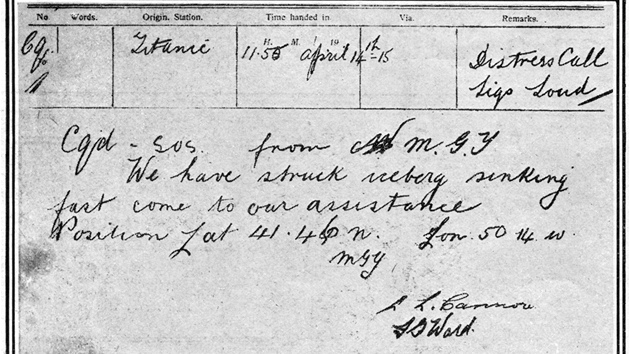 No Words. Origin. Station. Time handed in Via. Remarks.
H. M.
Titanic 11.55 April 14th-15 Distress Call
Sigs Loud
Cqd - SOS. from M.G.Y
We have struck iceberg sinking
fast come to our assistance
Position Lat 41.46 n. Lon. 50 14 w.
MGY
L. Cannon
Ward.